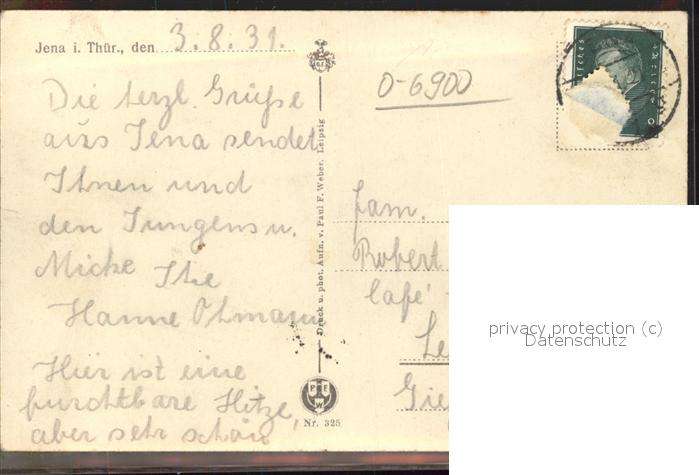 Jena i. Thür., den 3.8.31.
Die herzl. Grüße
aus Jena sendet
Ihnen und
den Jungens u.
Micke Ihe
Hanne Ohmann
Hier ist eine
furchtbare Hitze,
aber sehr schön
Druck u. phot. Aufn. v. Paul F. Weber, Leipzig
P F W
Nr. 325
0-6900
Fam.
Robert
Café
Gie
privacy protection (c)
Datenschutz